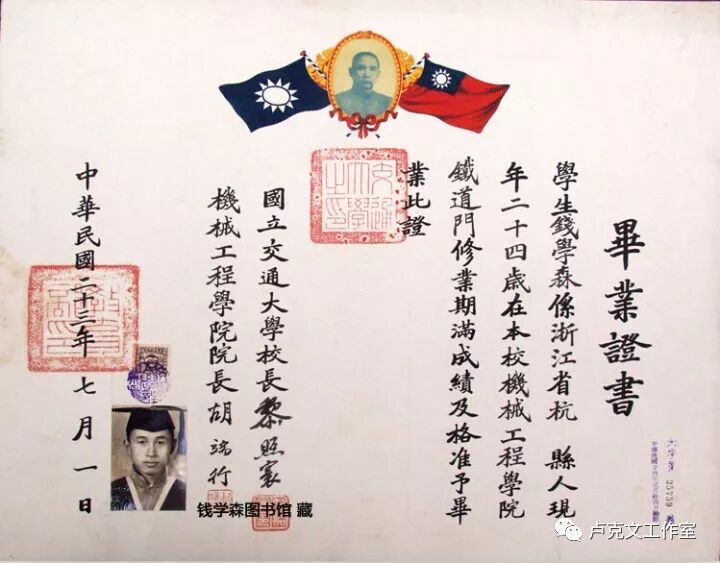 畢業證書
學生錢學森係浙江省杭 縣人現
年二十四歲在本校機械工程學院
鐵道門修業期滿成績及格准予畢
業此證
國立交通大學校長黎照寰
機械工程學院院長胡端行
中華民國二十三年 七月一日
大字第 25759 號
钱学森图书馆 藏
卢克文工作室